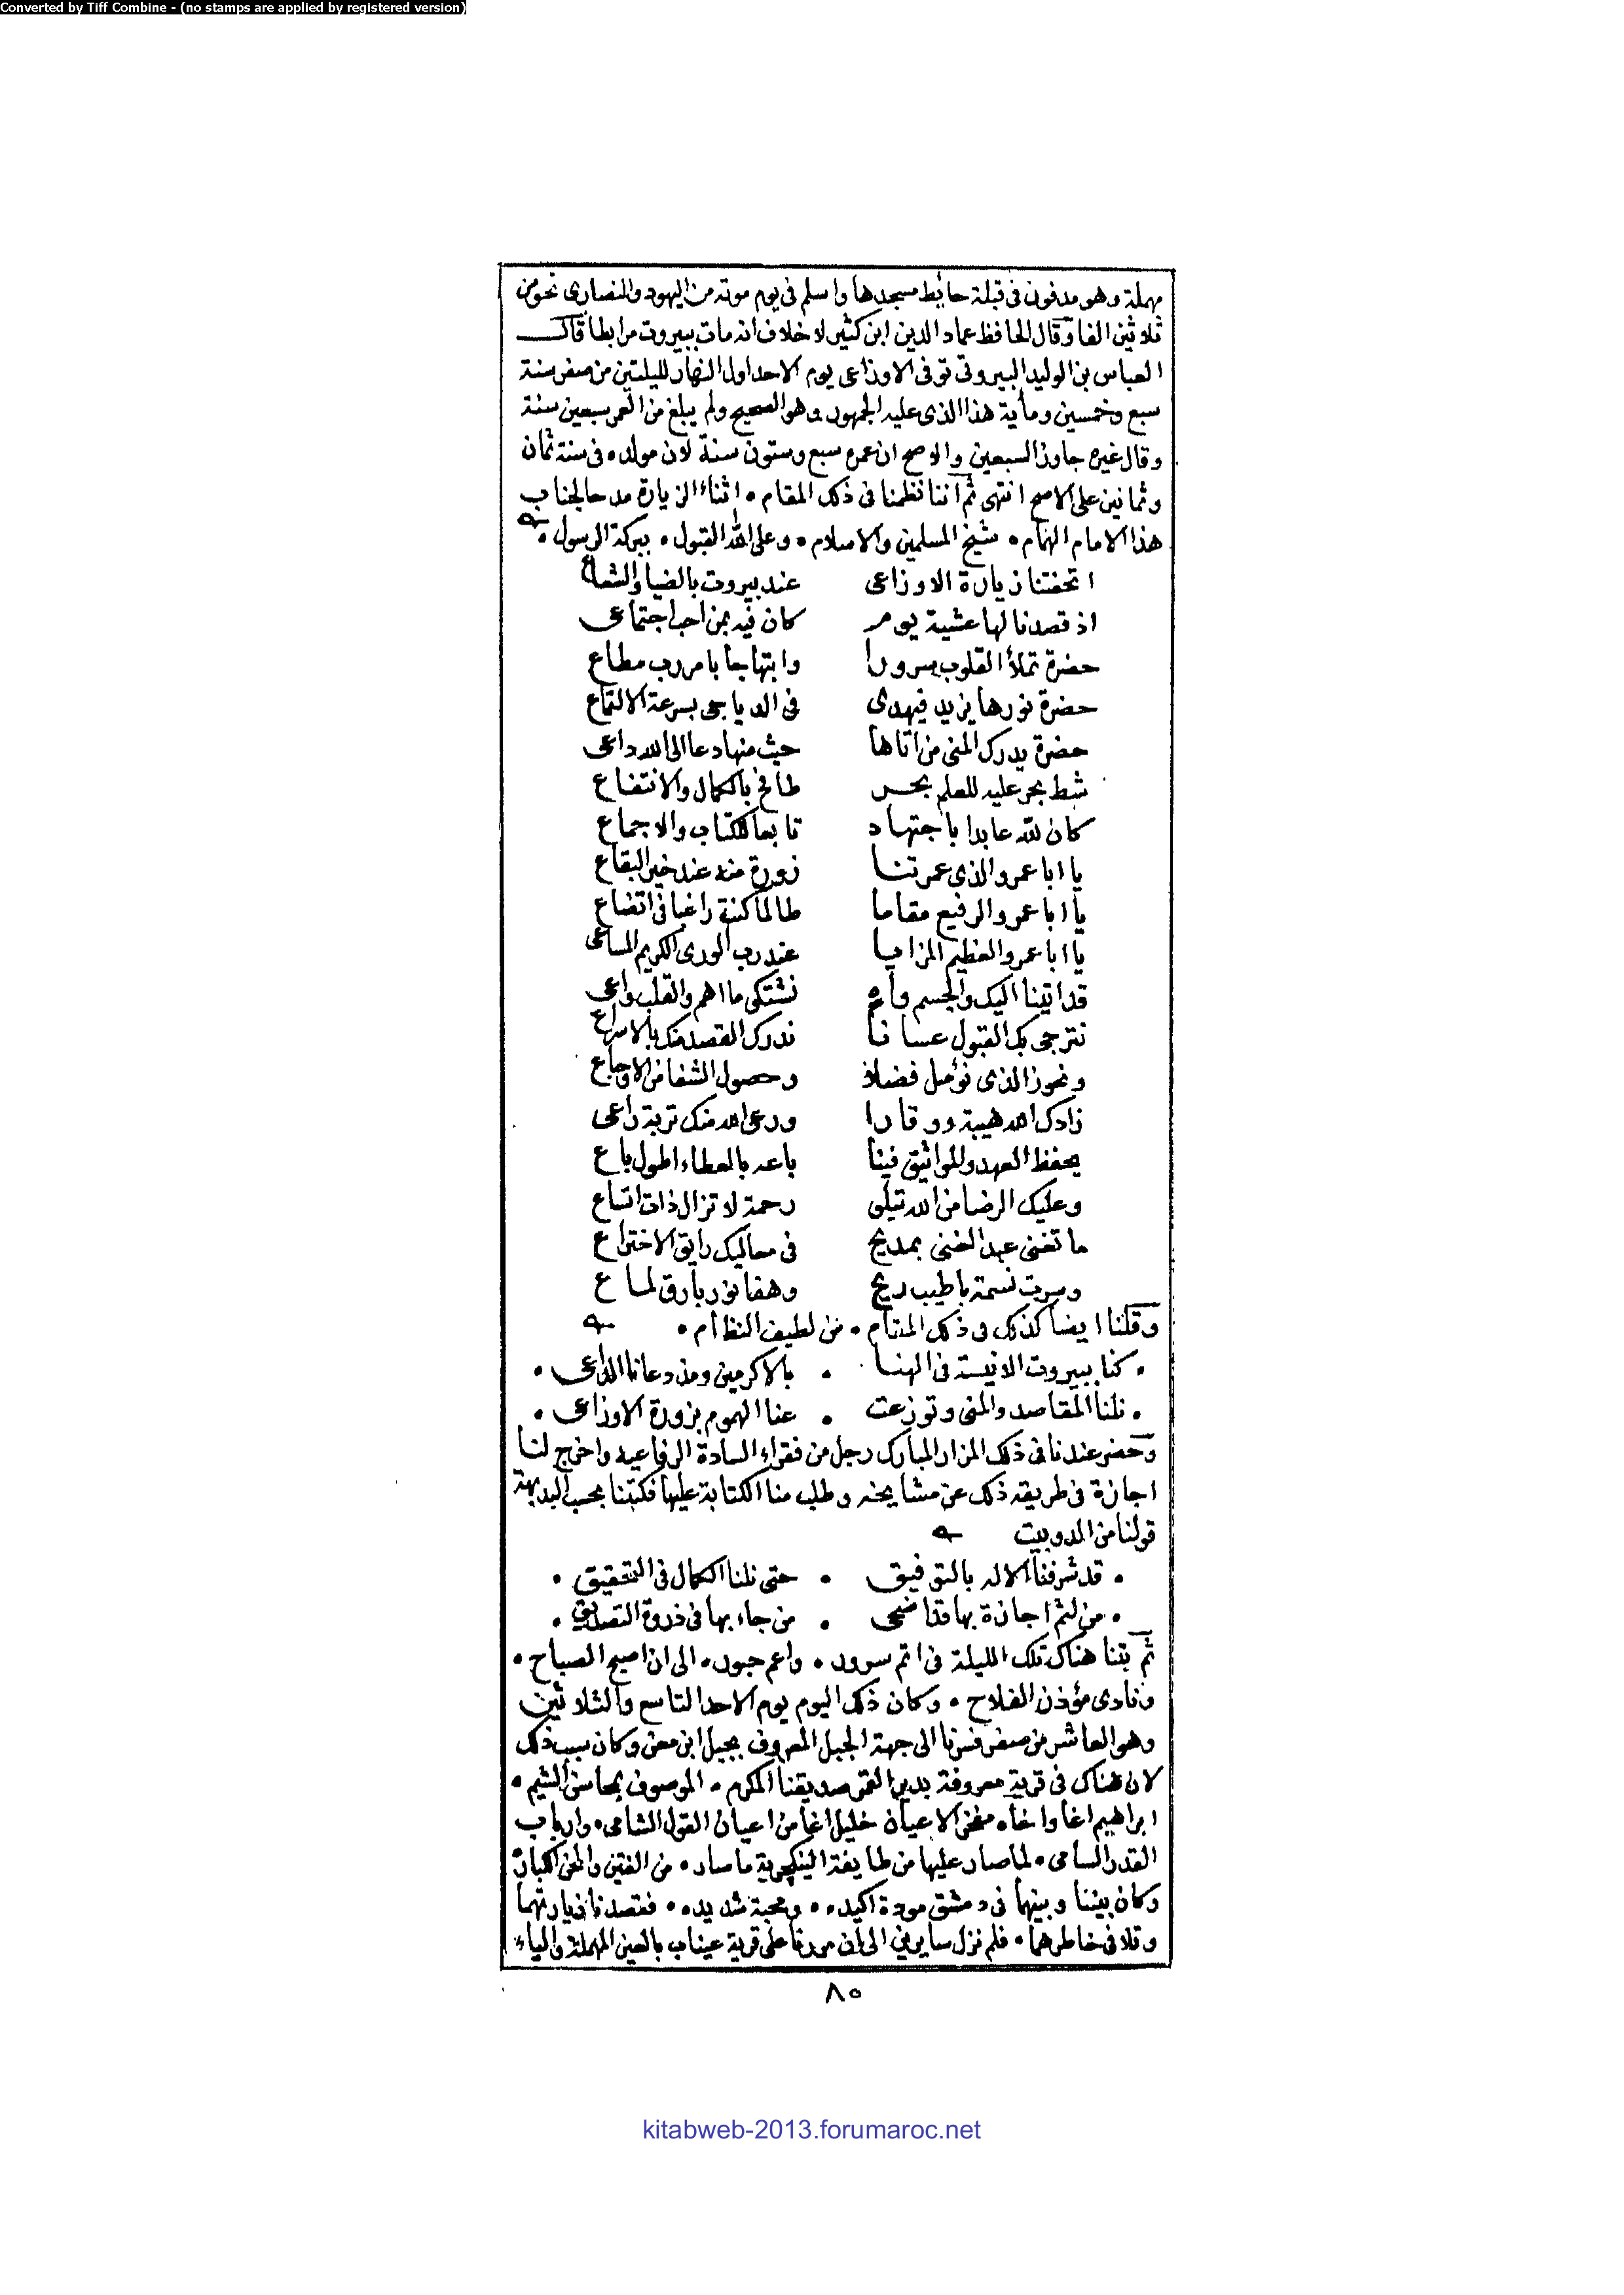 Converted by Tiff Combine - (no stamps are applied by registered version)
مهملة وهو مدفون في قبلة حايط مسجدها واسلم في يوم موته من اليهود والنصارى نحو من
ثلاثين الفا وقال الحافظ عماد الدين ابن كثير لا خلاف انه مات ببيروت مرابطا قال
العباس بن الوليد البيروتي توفى الاوزاعي يوم الاحد اول النهار لليلتين من صفر سنة
سبع وخمسين وماية هذا الذي عليه الجمهور وهو الصحيح ولم يبلغ من العمر سبعين سنة
وقال غيره جاوز السبعين والاصح ان عمره سبع وستون سنة لان مولده في سنة ثمان
وثمانين على الاصح انتهى ثم اننا نظمنا في ذلك المقام • اثناء الزيارة مدحا لجناب
هذا الامام الهمام • شيخ المسلمين والاسلام • وعلى الله القبول • ببركة الرسول •
اتحفتنا زيارة الاوزاعي عند بيروت بالضيا والشعاع
اذ قصدنا لها عشية يوم كان فيه بمن احب اجتماعي
حضرة تملأ القلوب سرورا وابتهاجا بامر رب مطاع
حضرة نورها يزيد فيهدى في الدياجى بسرعة الالتماع
حضرة يدرك المنى من اتاها حيث منها دعا الى الله داعي
شط بحر عليه للعلم بحر طافح بالكمال والانتفاع
كان لله عابدا باجتهاد تابعا للكتاب والاجماع
يا ابا عمرو الذي عمرتنا زورة منه عند خير البقاع
يا ابا عمرو الرفيع مقاما طالما كنت راغبا في اتضاع
يا ابا عمرو العظيم المزايا عند رب الورى الكريم المساعي
قد اتينا اليك والجسم واه نشتكى ما اهم والقلب واعي
نترجى بك القبول عسانا ندرك القصد منك بالاسراع
ونحوز الذي نؤمل فضلا وحصول الشفا من الاوجاع
زادك الله هيبة ووقارا ورعى الله منك تربة راعى
يحفظ العهد والمواثيق فينا باعه بالعطاء اطول باع
وعليك الرضا من الله تيلى رحمة لا تزال ذات اتساع
ما تغنى عبد الغنى بمديح في معاليك رايق الاختراع
وسرت نسمة باطيب ريح وهفا نور بارق لماع
وقلنا ايضا كذلك في ذلك المقام • من لطيف النظام •
• كنا ببيروت الانيسة في الهنا • بالاكرمين ومذ دعانا الداعى •
• نلنا المقاصد والمنى وتوزعت • عنا الهموم بزورة الاوزاعي •
وحضر عندنا في ذلك المزار المبارك رجل من فقراء السادة الرفاعيه واخرج لنا
اجازة في طريقه ذلك عن مشايخه وطلب منا الكتابة عليها فكتبنا بحسب البديهة
قولنا من الدوبيت
• قد شرفنا الاله بالتوفيق • حتى نلنا الكمال في التحقيق •
• من لثم اجازة بها قد اضحى • من جاء بها في ذروة التصديق •
ثم بتنا هناك تلك الليلة في اتم سرور • واعم حبور • الى ان اصبح الصباح •
ونادى مؤذن الفلاح • وكان ذلك اليوم يوم الاحد التاسع والثلاثين
وهو العاشر من صفر فسرنا الى جهة الجبل المعروف بجبل ابن معن وكان سبب ذلك
لان هناك في قرية معروفة بدير القمر صديقنا المكرم • الموصوف بمحاسن الشيم •
ابراهيم اغا واخاه مفخر الاعيان خليل اغا من اعيان القول الشامى • وارباب
القدر السامى • لما صار عليها من طايفة الينكجرية ما صار • من الفتن والمحن الكبار
وكان بيننا وبينهما في دمشق مودة اكيده • ومحبة شديده • فقصدنا زيارتهما
وتلافى خاطرهما • فلم نزل سايرين الى ان مررنا على قرية عيناب بالعين المهملة والياء
٨٥
kitabweb-2013.forumaroc.net